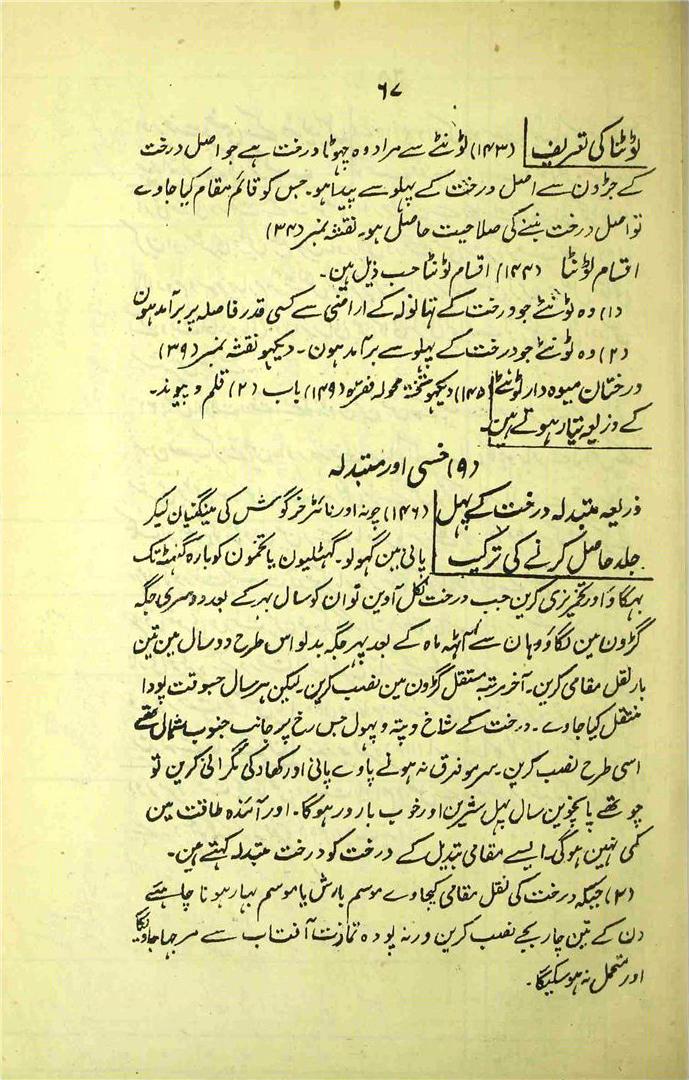 ۶۷
لوٹنا کی تعریف (۱۴۳) لوٹنٹے سے مراد وہ چہوٹا درخت ہے جو اصل درخت
کے جڑون سے اصل درخت کے پہلو سے پیدا ہو۔ جس کو قائم مقام کیا جاوے
تو اصل درخت بننے کی صلاحیت حاصل ہو۔ نقشہ نمبر (۳۴)
اقسام لوٹنٹا (۱۴۴) اقسام لوٹنٹا حسب ذیل ہین۔
(۱) وہ لوٹنٹے جو درخت کے تہانولہ کے اراضی سے کسی قدر فاصلہ پر برآمد ہون
(۲) وہ لوٹنٹے جو درخت کے پہلو سے برآمد ہون۔ دیکہو نقشہ نمبر (۳۹)
درختان میوہ دار لوٹنٹے (۱۴۵) دیکہو تختہ محولہ فقرہ (۱۴۹) باب (۲) قلم و پیوند۔
کے ذریعہ تیار ہوتے ہین
(۹) خسی اور متبدلہ
ذریعہ متبدلہ درخت کے پہل (۱۴۶) چونہ اور نائٹر خرگوش کی مینگنیان لیکر
جلد حاصل کرنے کی ترکیب پانی مین گہولو۔ گہٹلیون یا تخمون کو بارہ گہنٹہ تک
بہگاؤ اور تخمریزی کرین جب درخت نکل آوین تو ان کو سال بہر کے بعد دوسری جگہ
گڑون مین لگاؤ وہان سے آٹہہ ماہ کے بعد پہر جگہ بدلو اس طرح دو سال مین تین
بار نقل مقامی کرین۔ آخر مرتبہ مستقل گڑون مین نصب کرین۔ لیکن ہر سال جسوقت پودا
منتقل کیا جاوے۔ درخت کے شاخ و پتہ و پہول جس رخ پر جانب جنوب شمال تہے
اسی طرح نصب کرین۔ سرمو فرق نہ ہونے پاوے پانی اور کہاد کی نگرانی کرین تو
چوتہے پانچوین سال پہل شیرین اور خوب بارور ہوگا۔ اور آئندہ طاقت مین
کمی نہین ہوگی۔ ایسے مقامی تبدیل کے درخت کو درخت متبدلہ کہتے ہین۔
(۲) جبکہ درخت کی نقل مقامی کیجاوے موسم بارش یا موسم بہار ہونا چاہئے
دن کے تین چار بجے نصب کرین ورنہ پودہ تمازت آفتاب سے مرجہا جاویگا
اور متحمل نہ ہوسکیگا۔